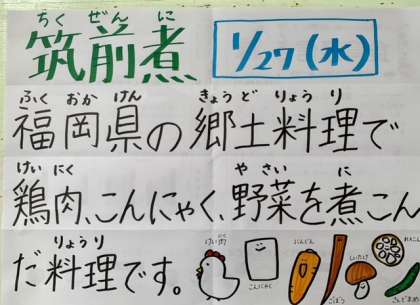 ちくぜんに
筑前煮
1/27(水)
ふくおかけん きょうどりょうり
福岡県の郷土料理で
けいにく やさい に
鶏肉、こんにゃく、野菜を煮こん
りょうり
だ料理です。
けい肉
にく
こんにゃく
にんじん
ごぼう
しいたけ
れんこん